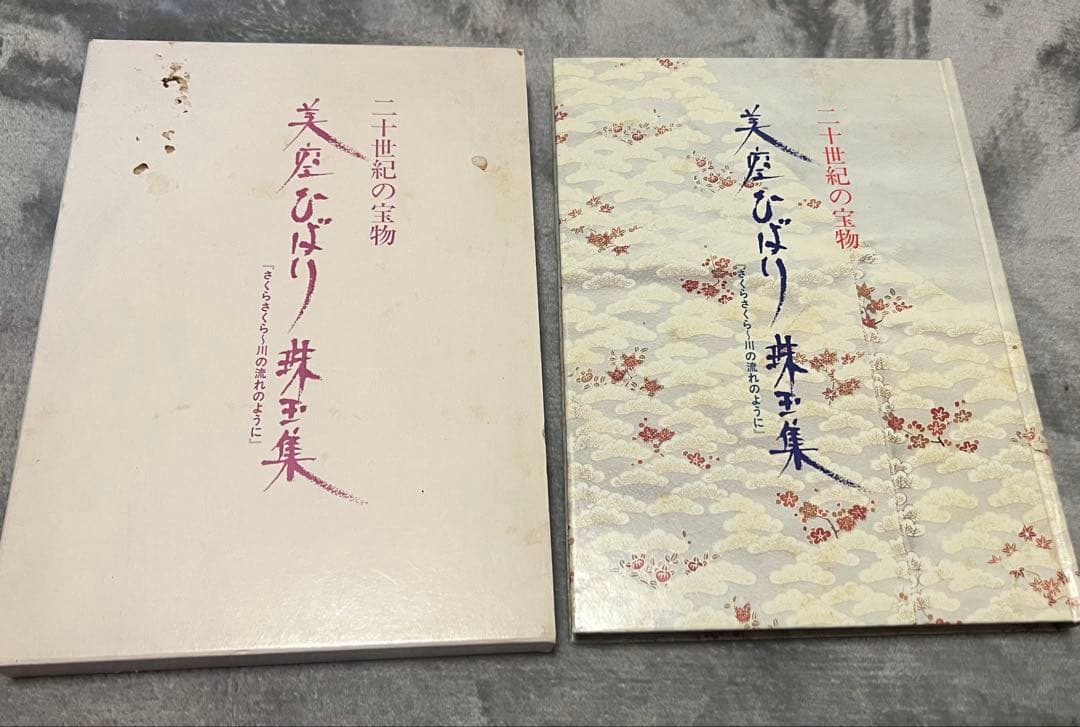 二十世紀の宝物
美空ひばり 珠玉集
『さくらさくら〜川の流れのように』
二十世紀の宝物
美空ひばり 珠玉集
『さくらさくら〜川の流れのように』